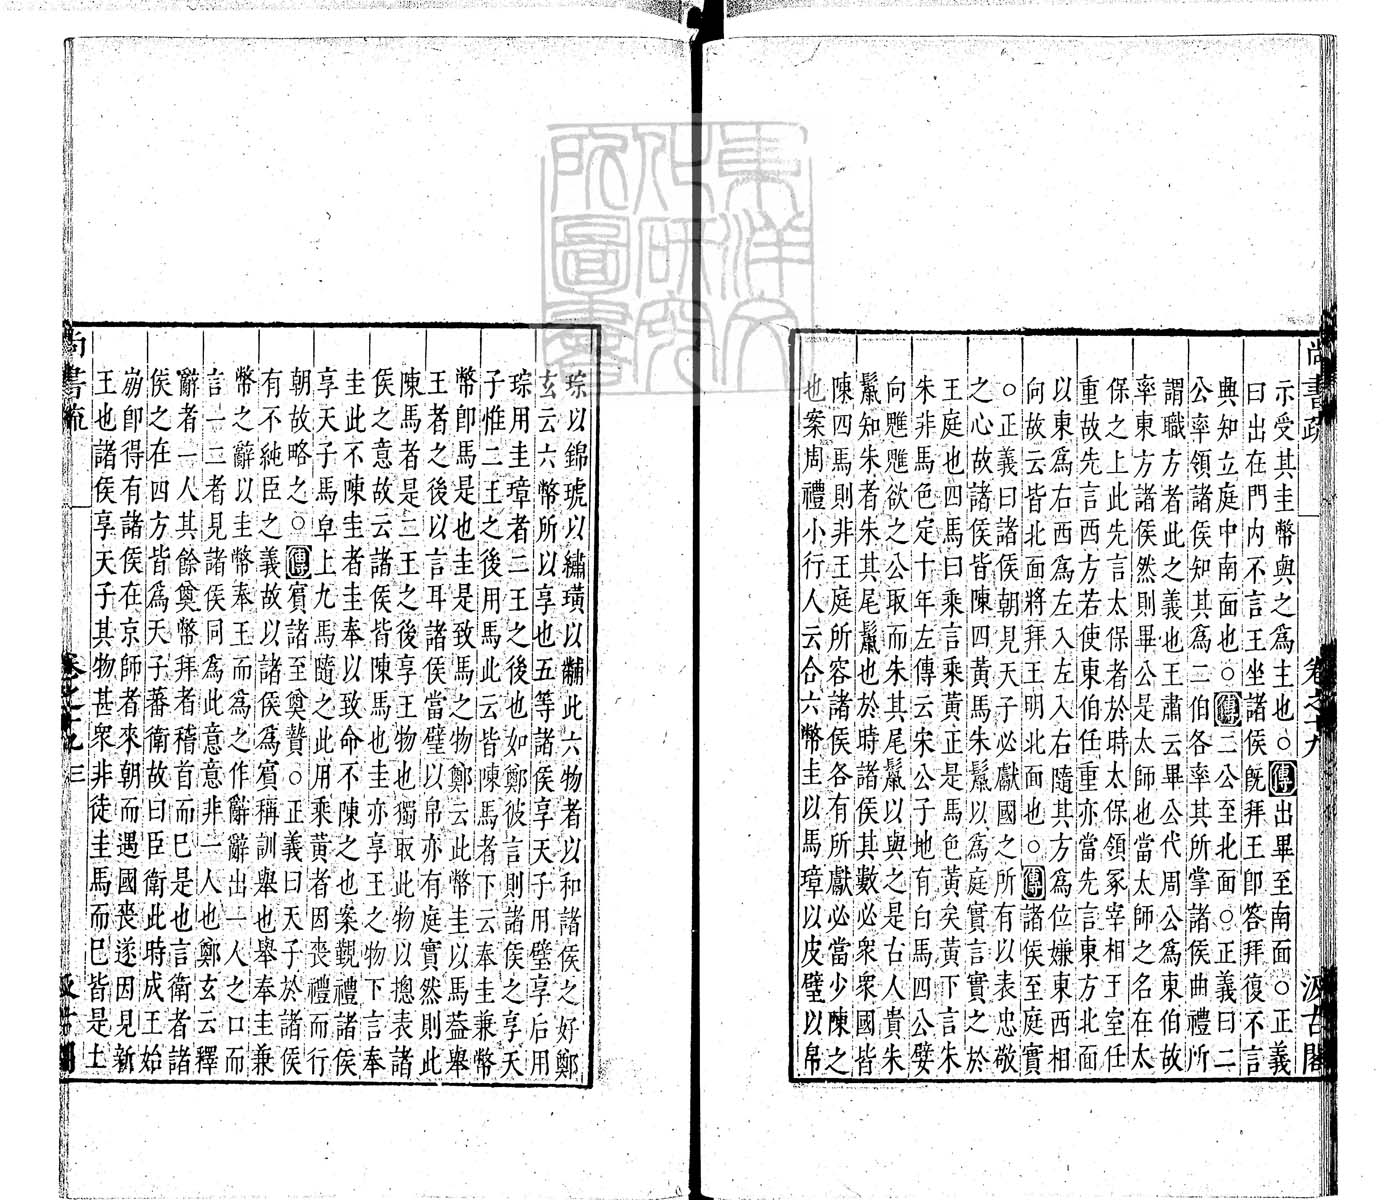 尚書疏
卷之十九
汲古閣
示受其圭幣與之爲主也○傳出畢至南面○正義
曰出在門内不言王坐諸侯旣拜王卽答拜復不言
興知立庭中南面也○傳二公至北面○正義曰二
公率領諸侯知其爲二伯各率其所掌諸侯曲禮所
謂職方者此之義也王肅云畢公代周公爲東伯故
率東方諸侯然則畢公是太師也當太師之名在太
保之上此先言太保者於時太保領冢宰相王室任
重故先言西方若使東伯任重亦當先言東方北面
以東爲右西爲左入左入右隨其方爲位嫌東西相
向故云皆北面將拜王明北面也○傳諸侯至庭實
○正義曰諸侯朝見天子必獻國之所有以表忠敬
之心故諸侯皆陳四黃馬朱鬣以爲庭實言實之於
王庭也四馬曰乘言乘黃正是馬色黃矣黃下言朱
朱非馬色定十年左傳云宋公子地有白馬四公嬖
向魋魋欲之公取而朱其尾鬣以與之是古人貴朱
鬣知朱者朱其尾鬣也於時諸侯其數必衆衆國皆
陳四馬則非王庭所容諸侯各有所獻必當少陳之
也案周禮小行人云合六幣圭以馬璋以皮璧以帛
琮以錦琥以繡璜以黼此六物者以和諸侯之好鄭
玄云六幣所以享也五等諸侯享天子用璧享后用
琮用圭璋者二王之後也如鄭彼言則諸侯之享天
子惟二王之後用馬此云皆陳馬者下云奉圭兼幣
幣卽馬是也圭是致馬之物鄭云此幣圭以馬葢舉
王者之後以言耳諸侯當璧以帛亦有庭實然則此
陳馬者是二王之後享王物也獨取此物以摠表諸
侯之意故云諸侯皆陳馬也圭亦享王之物下言奉
圭此不陳圭者圭奉以致命不陳之也案覲禮諸侯
享天子馬卓上九馬隨之此用乘黃者因喪禮而行
朝故略之○傳賓諸至奠贄○正義曰天子於諸侯
有不純臣之義故以諸侯爲賓稱訓舉也舉奉圭兼
幣之辭以圭幣奉王而爲之作辭辭出一人之口而
言一二者見諸侯同爲此意意非一人也鄭玄云釋
辭者一人其餘奠幣拜者稽首而巳是也言衛者諸
侯之在四方皆爲天子蕃衛故曰臣衛此時成王始
崩卽得有諸侯在京師者來朝而遇國喪遂因見新
王也諸侯享天子其物甚衆非徒圭馬而巳皆是土
尚書疏
卷之十九
三
汲古閣